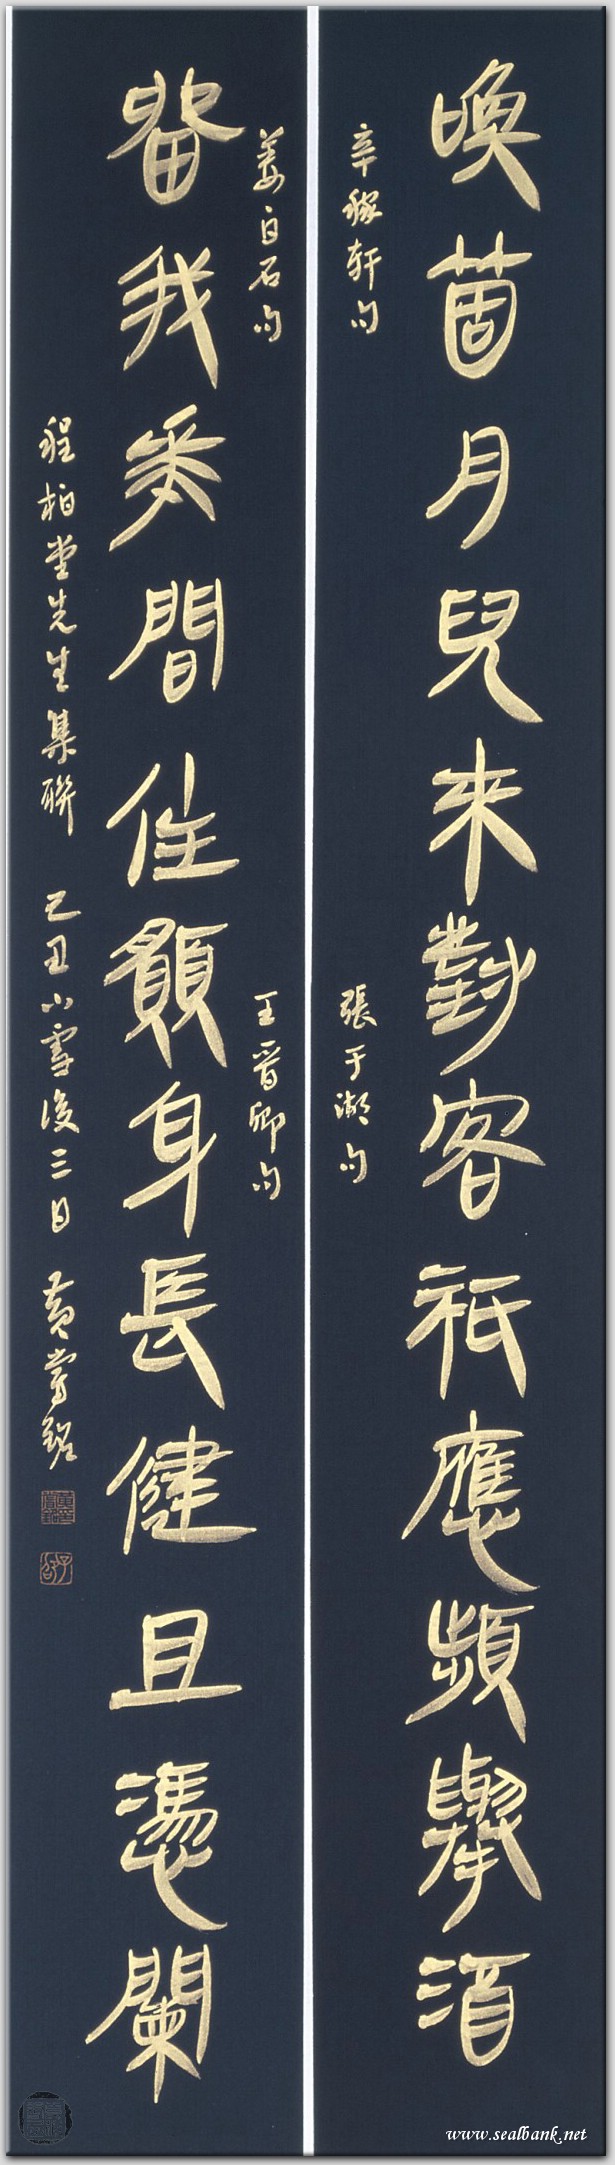 喚箇月兒來對客祗應頻舉酒
辛稼軒句
張于湖句
留我花間住願身長健且憑闌
姜白石句
王晉卿句
程柏堂先生集聯 己丑小雪後三日 黃嘗銘
www.sealbank.net